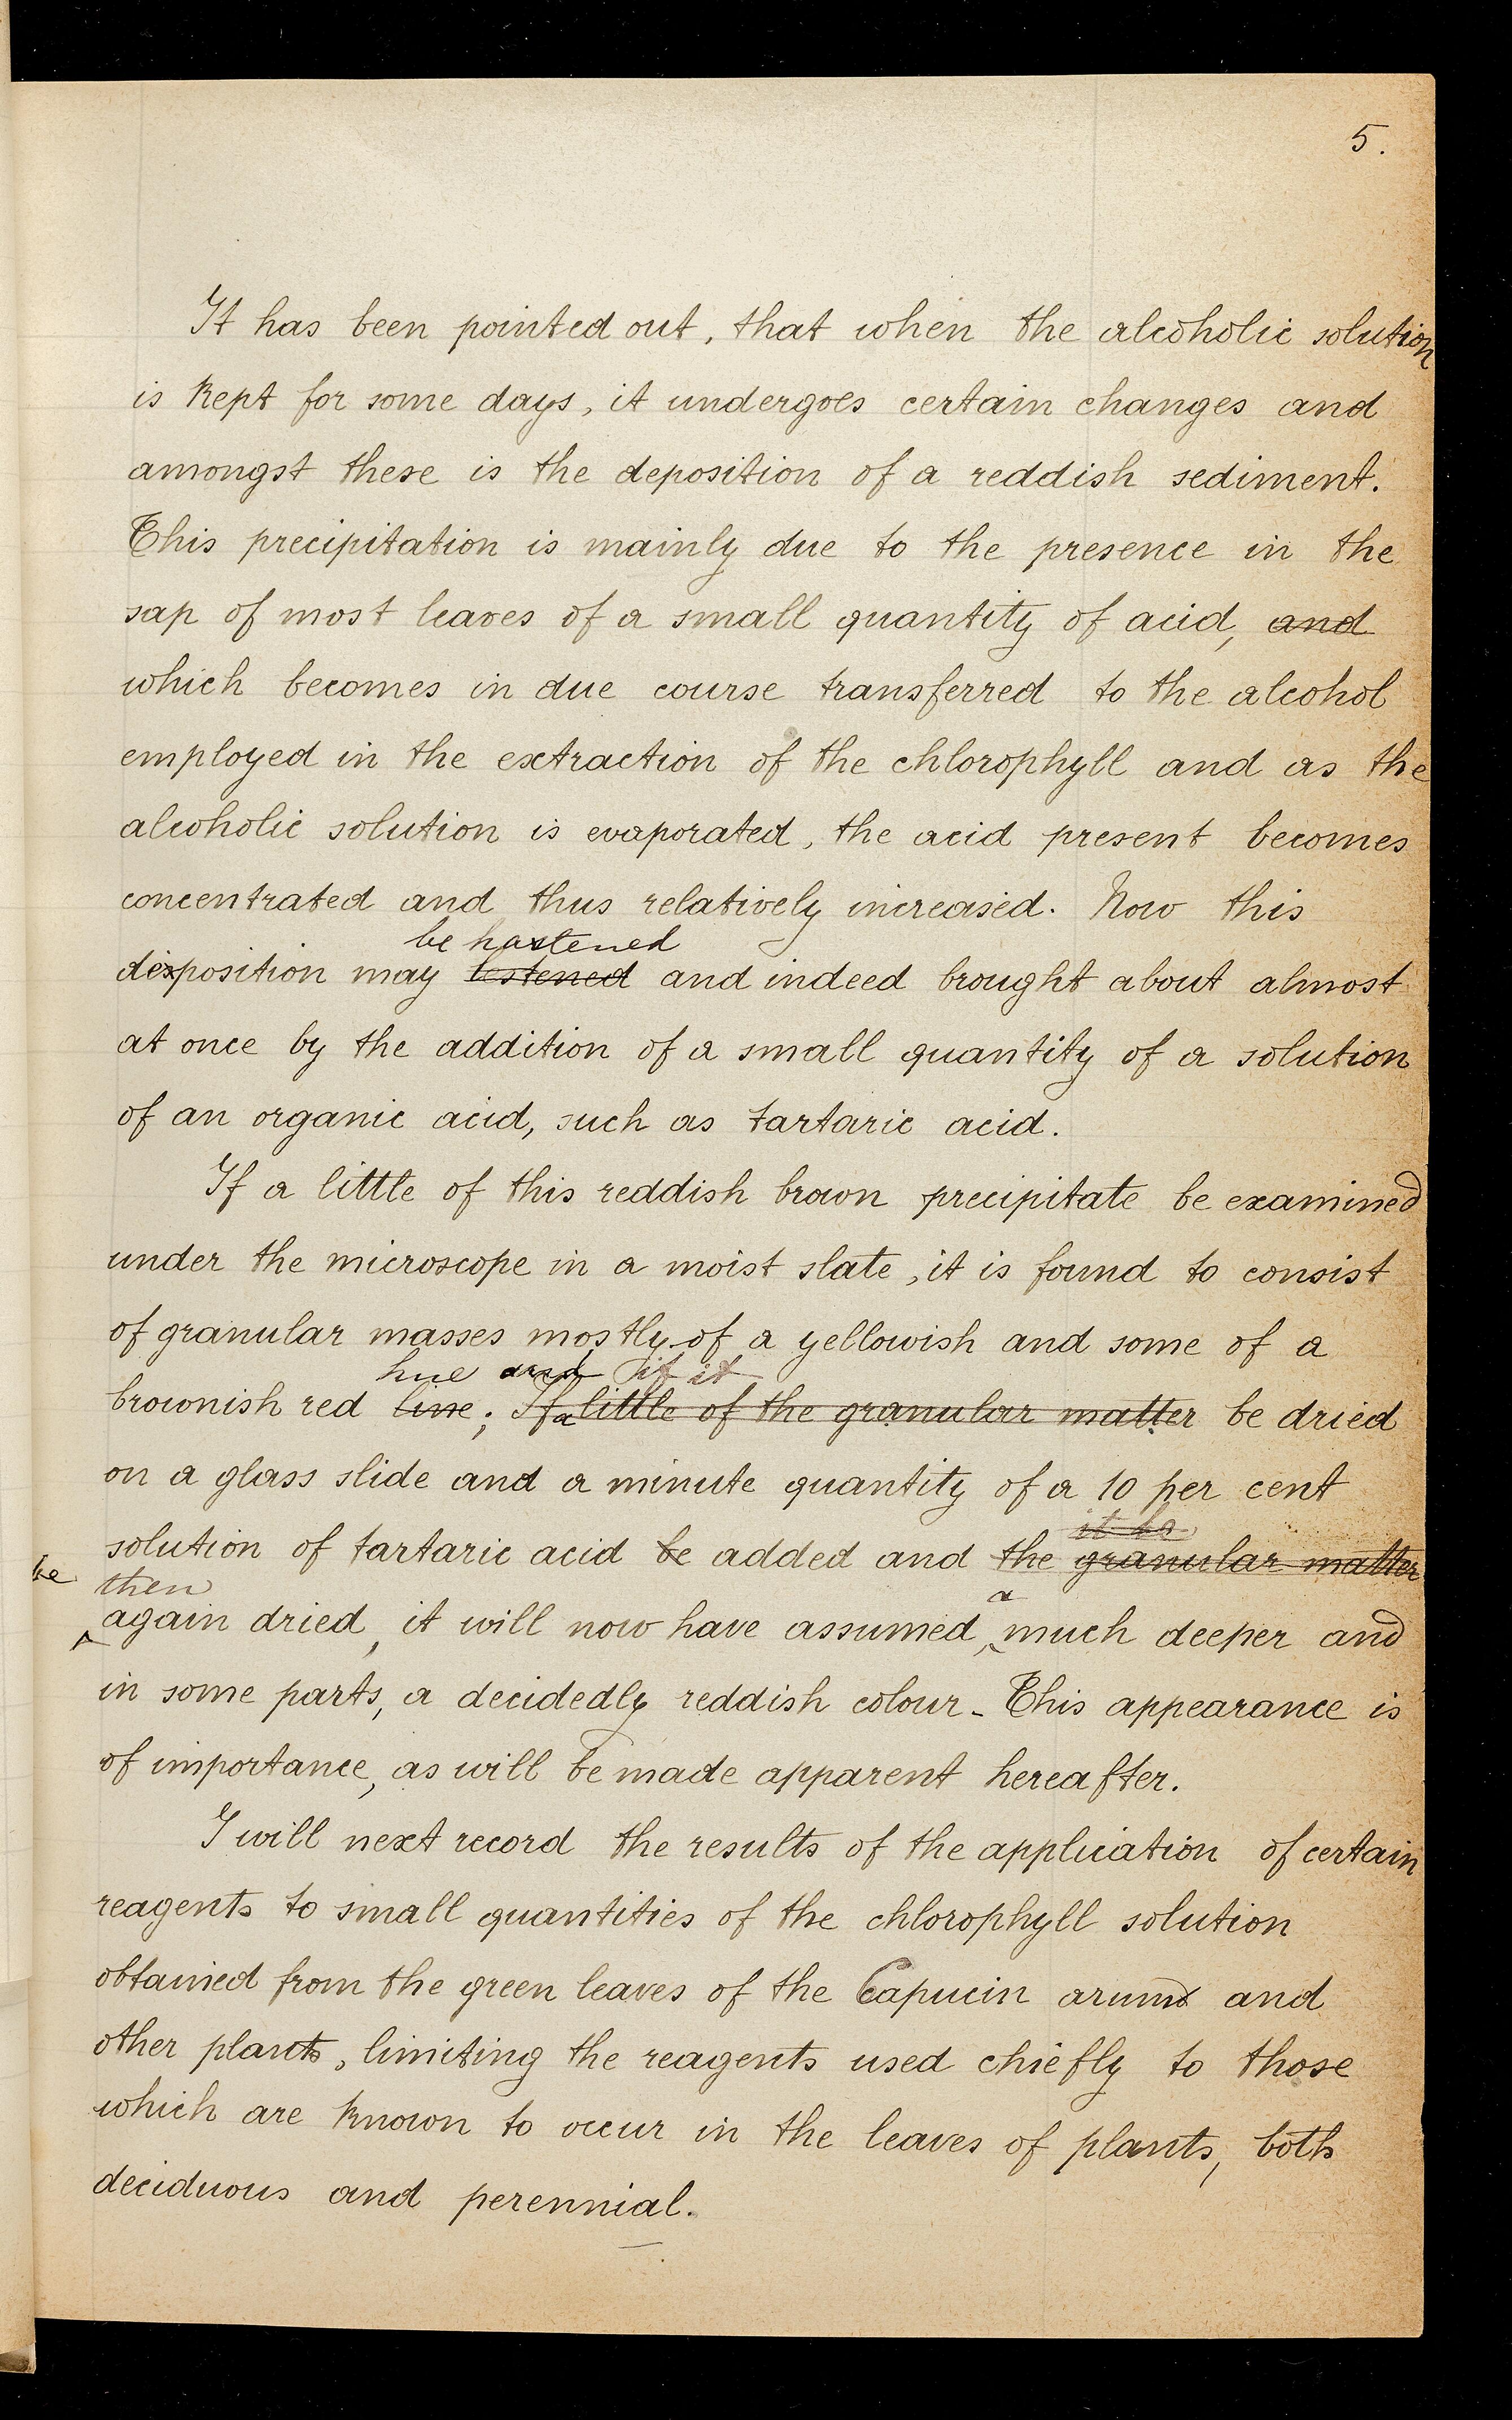 5.
It has been pointed out, that when the alcoholic solution
is kept for some days, it undergoes certain changes and
amongst these is the deposition of a reddish sediment.
This precipitation is mainly due to the presence in the
sap of most leaves of a small quantity of acid, and
which becomes in due course transferred to the alcohol
employed in the extraction of the chlorophyll and as the
alcoholic solution is evaporated, the acid present becomes
concentrated and thus relatively increased. Now this
be hastened
deposition may and indeed brought about almost
at once by the addition of a small quantity of a solution
of an organic acid, such as tartaric acid.
If a little of this reddish brown precipitate be examined
under the microscope in a moist slate, it is found to consist
of granular masses mostly of a yellowish and some of a
hue and if it
brownish red line; If a little of the granular matter be dried
on a glass slide and a minute quantity of a 10 per cent
it be
solution of tartaric acid be added and the granular matter
be then
again dried, it will now have assumed, much deeper and
a
in some parts, a decidedly reddish colour - This appearance is
of importance, as will be made apparent hereafter.
I will next record the results of the application of certain
reagents to small quantities of the chlorophyll solution
obtained from the green leaves of the Capucin arums and
other plants, limiting the reagents used chiefly to those
which are known to occur in the leaves of plants, both
deciduous and perennial.